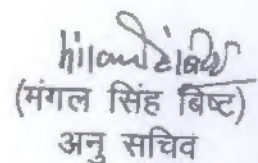 (मंगल सिंह बिष्ट)
अनु सचिव